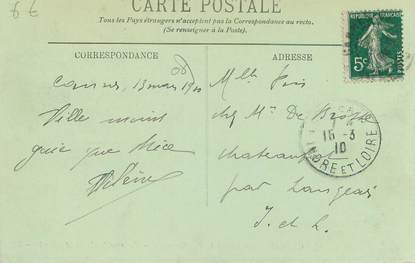 CARTE POSTALE
Tous les Pays étrangers n'acceptent pas la Correspondance au recto.
(Se renseigner à la Poste).
CORRESPONDANCE
Cannes, 13 mars 1910
Ville moins
gaie que Nice
Hélène
ADRESSE
Mlle
chez Mr De
chateau
par Langeais
I. et L.
REPUBLIQUE FRANÇAISE
POSTES
5c
15-3
10
INDRE ET LOIRE